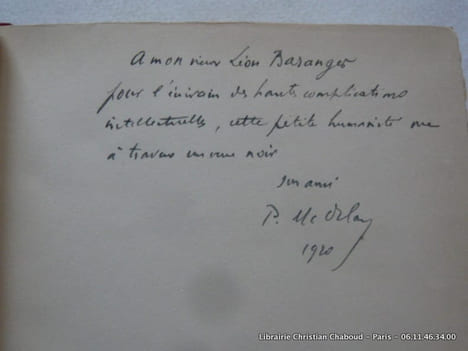 A mon vieux Léon Baranger
pour l'écrivain des hautes complications
intellectuelles, cette petite humanité vue
à travers un verre noir
son ami
P. Mc Orlan
1920
Librairie Christian Chaboud - Paris - 06.11.46.34.00